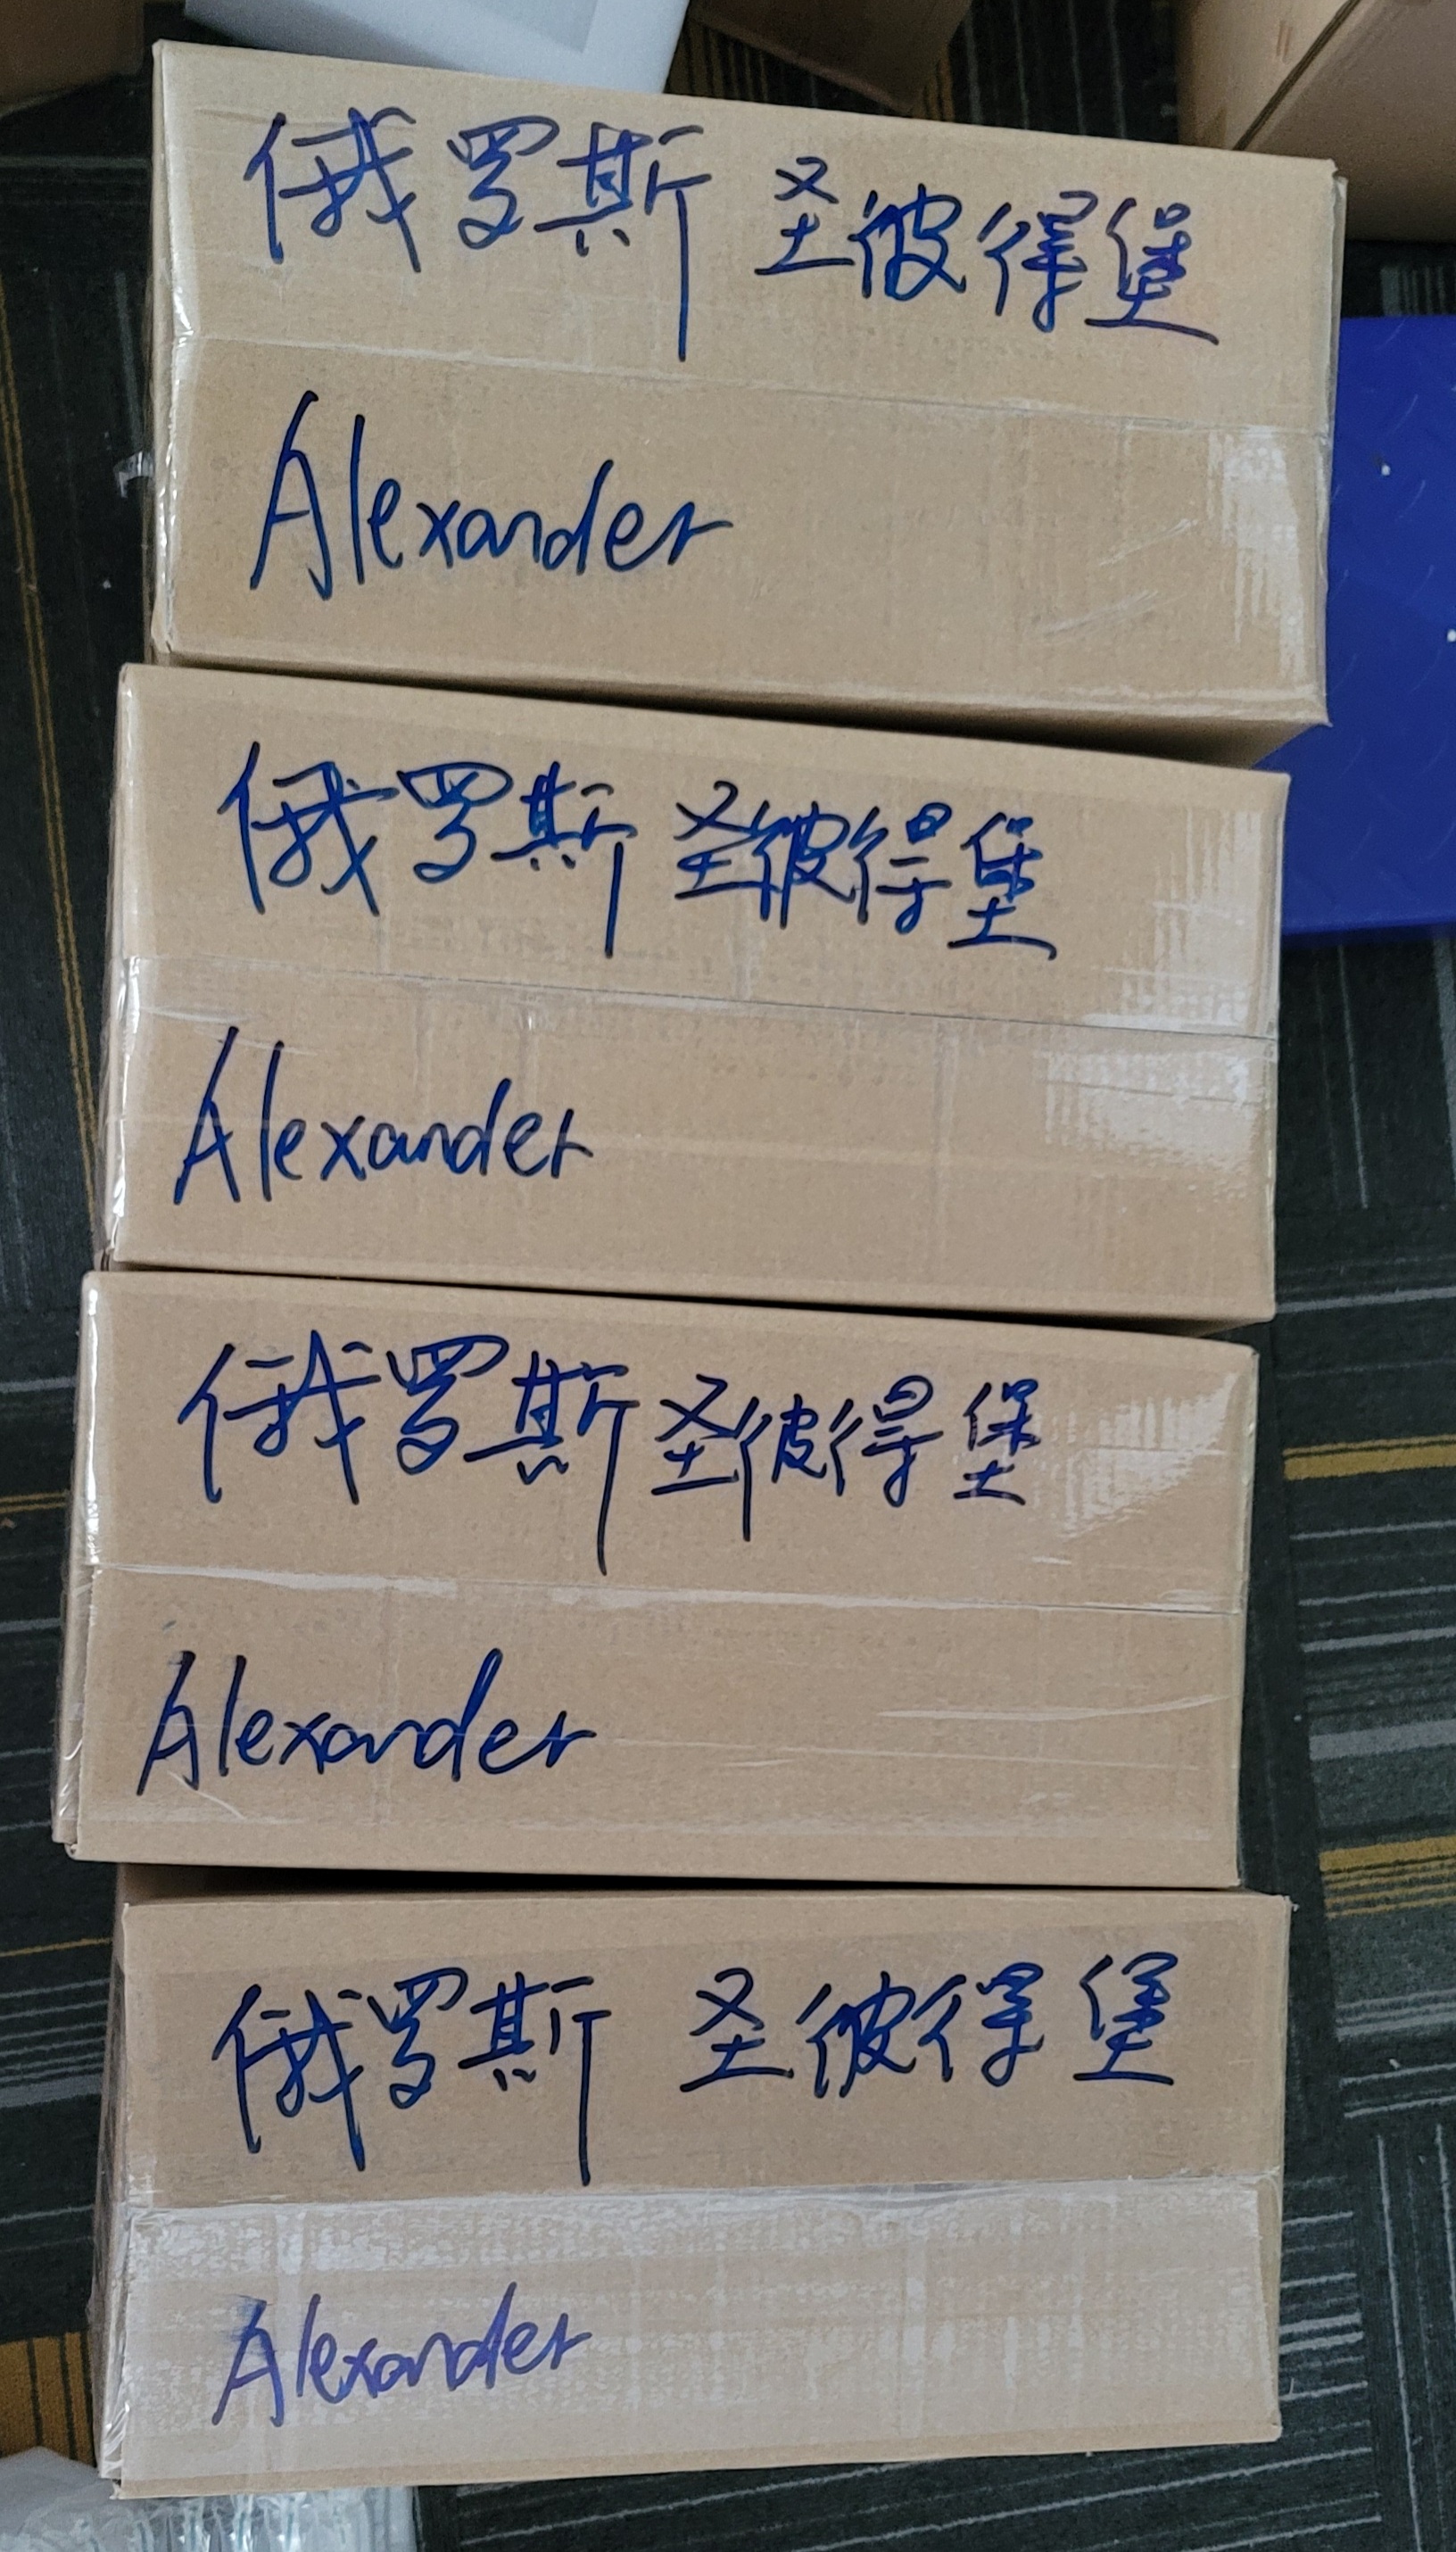 俄罗斯 圣彼得堡
Alexander
俄罗斯 圣彼得堡
Alexander
俄罗斯 圣彼得堡
Alexander
俄罗斯 圣彼得堡
Alexander